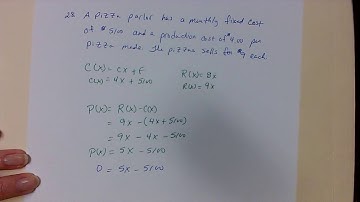 28. A pizza parlor has a monthly fixed cost
of $5100 and a production cost of $4.00 per
pizza made. The pizzas sells for $9 each.
C(x) = cx + F
C(x) = 4x + 5100
R(x) = 8x
R(x) = 9x
P(x) = R(x) - C(x)
= 9x - (4x + 5100)
= 9x - 4x - 5100
P(x) = 5x - 5100
0 = 5x - 5100